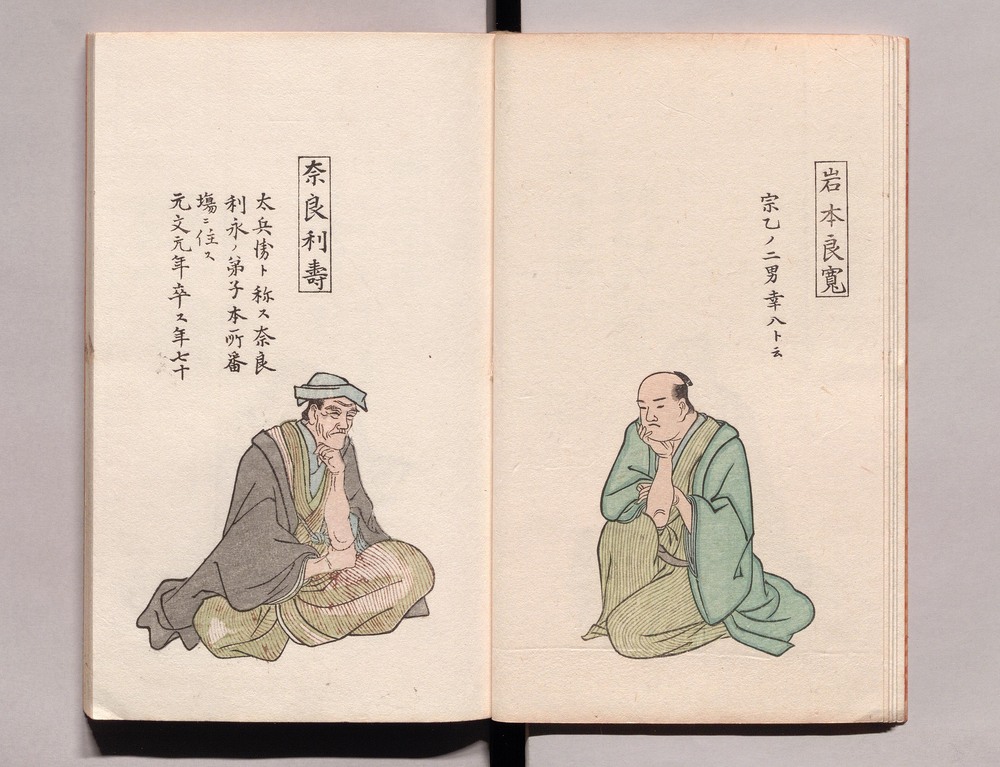 岩本良寛
宗乙ノ二男幸八ト云
奈良利壽
太兵衛ト称ス奈良
利永ノ弟子本所番
塲ニ住ス
元文元年卒ス年七十